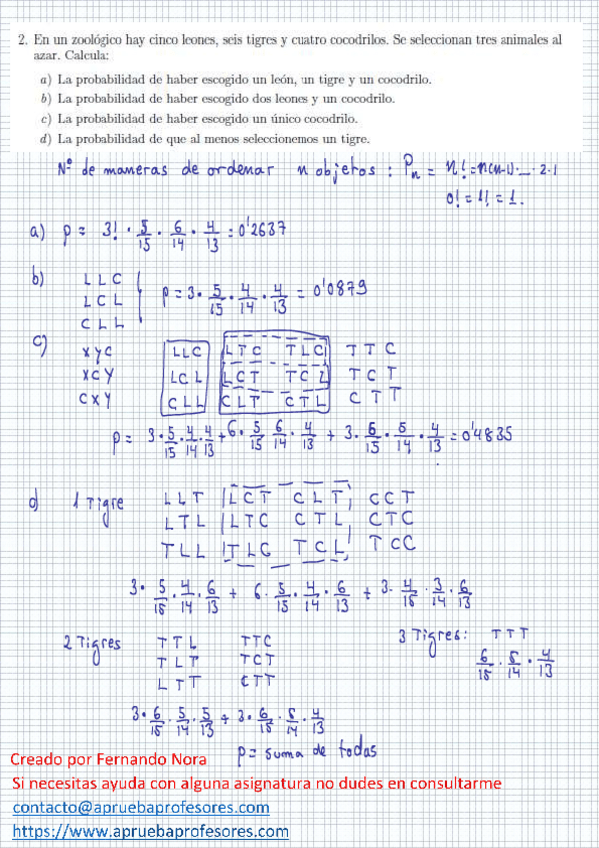 2. En un zoológico hay cinco leones, seis tigres y cuatro cocodrilos. Se seleccionan tres animales al
azar. Calcula:
a) La probabilidad de haber escogido un león, un tigre y un cocodrilo.
b) La probabilidad de haber escogido dos leones y un cocodrilo.
c) La probabilidad de haber escogido un único cocodrilo.
d) La probabilidad de que al menos seleccionemos un tigre.
Nº de maneras de ordenar n objetos : Pn = n! = n(n-1)·...·2·1
0! = 1! = 1.
a) p = 3! · 5/15 · 6/14 · 4/13 = 0'2637
b) LLC
LCL
CLL
p = 3 · 5/15 · 4/14 · 4/13 = 0'0879
c) XYC LLC LTC TLC TTC
XCY LCL LCT TCL TCT
CXY CLL CLT CTL CTT
p = 3 · 5/15 · 4/14 · 4/13 + 6 · 5/15 · 6/14 · 4/13 + 3 · 6/15 · 5/14 · 4/13 = 0'4835
d) 1 Tigre LLT LCT CLT CCT
LTL LTC CTL CTC
TLL TLC TCL TCC
3 · 5/15 · 4/14 · 6/13 + 6 · 5/15 · 4/14 · 6/13 + 3 · 4/15 · 3/14 · 6/13
2 Tigres TTL TTC
TLT TCT
LTT CTT
3 Tigres: TTT
6/15 · 5/14 · 4/13
3 · 6/15 · 5/14 · 5/13 + 3 · 6/15 · 5/14 · 4/13
p = suma de todas
Creado por Fernando Nora
Si necesitas ayuda con alguna asignatura no dudes en consultarme
contacto@apruebaprofesores.com
https://www.apruebaprofesores.com